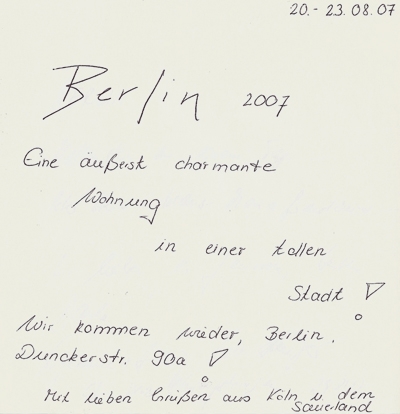 20.- 23.08.07
Berlin 2007
Eine äußerst charmante
Wohnung
in einer tollen
Stadt!
Wir kommen wieder, Berlin,
Dunckerstr. 90a!
Mit lieben Grüßen aus Köln u. dem
Sauerland